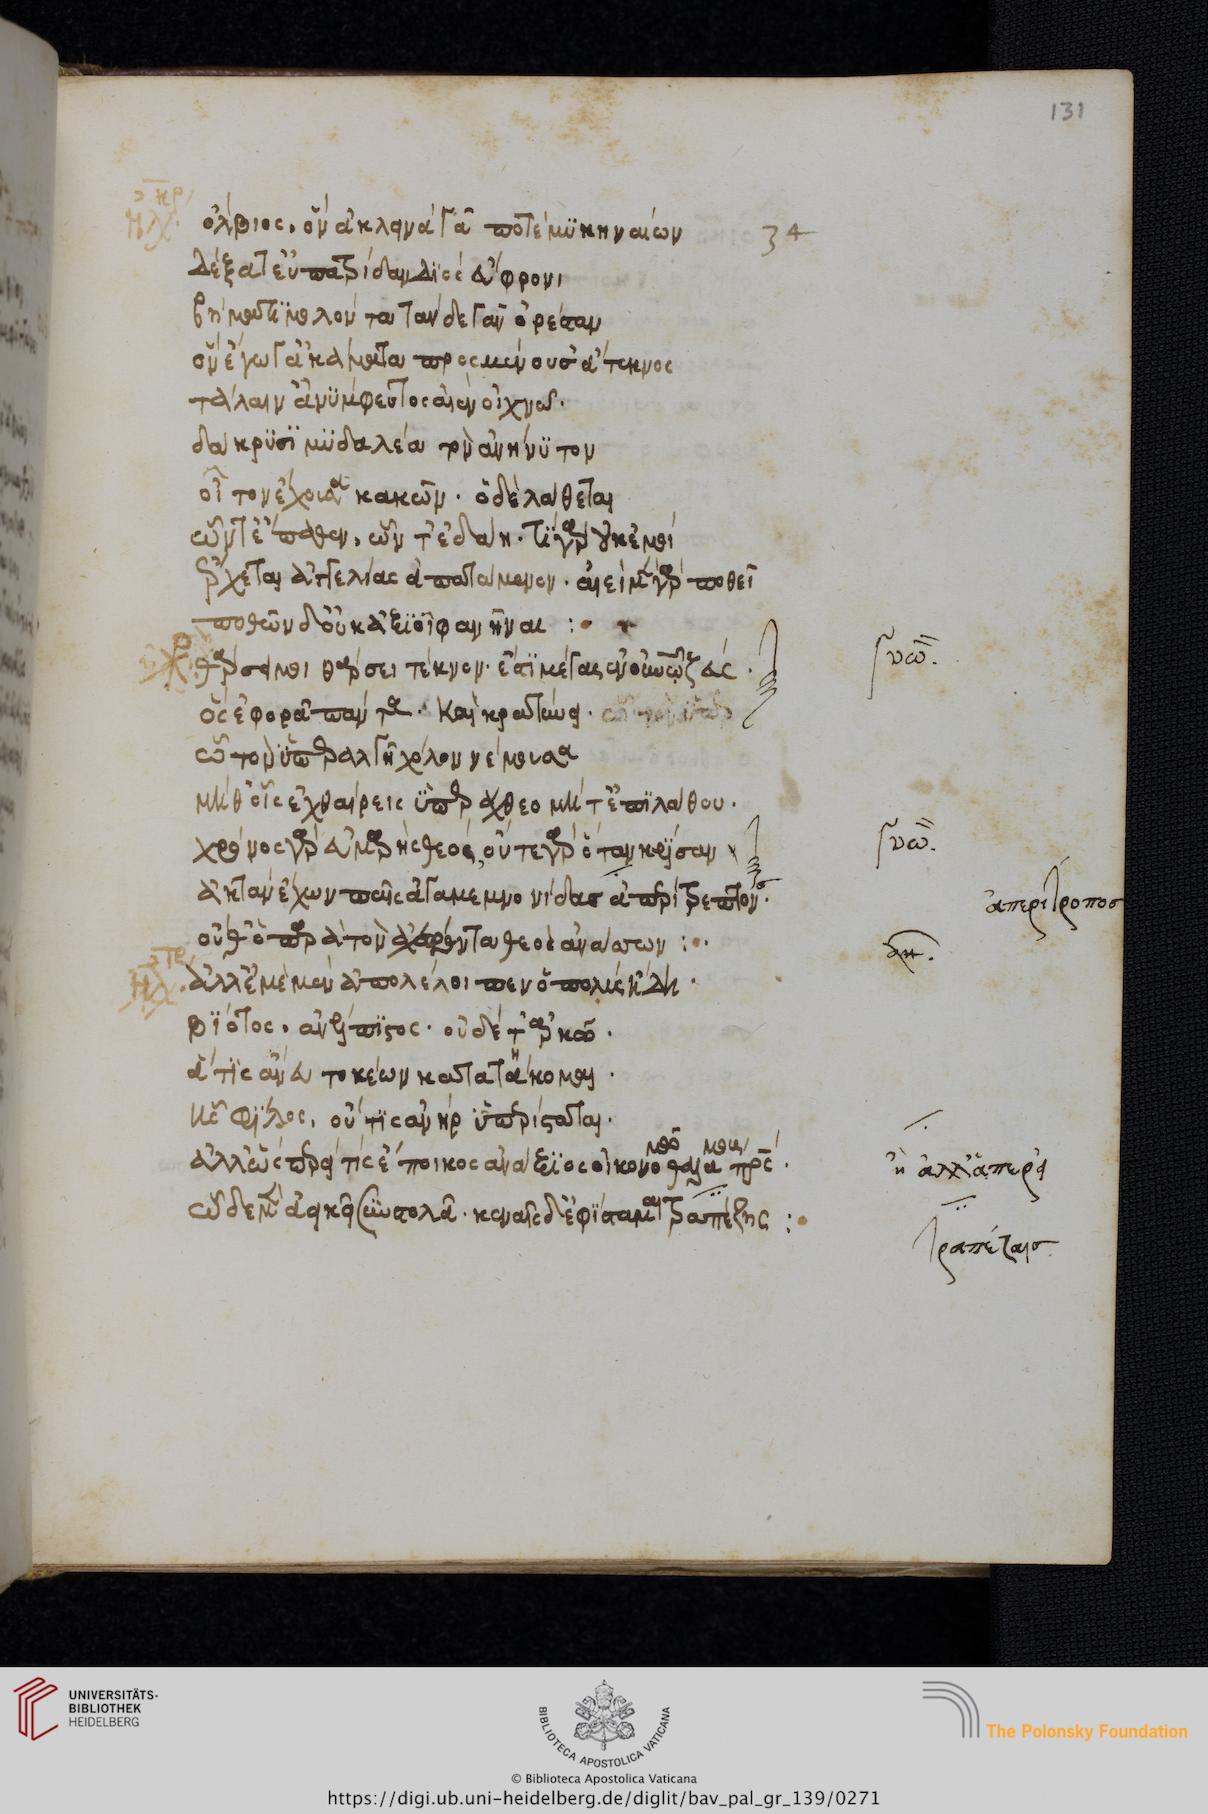 131
ὄλβιος, ὃν ἁ κλεινὰ γᾶ ποτὲ μυκηναίων 34
δέξατ' εὐπατρίδαν διὸς εὔφρονι
βήματι μολόντα τάνδε γᾶν ὀρέσταν
ὃν ἔγωγ' ἀκάματα προσμένουσ' ἄτεκνος
τάλαιν' ἀνύμφευτος αἰὲν οἰχνῶ.
δάκρυσι μυδαλέα τὸν ἀνήνυτον
οἶτον ἔχουσα κακῶν. ὁ δὲ λάθεται
ὧν τ' ἔπαθεν, ὧν τ' ἐδάη. τί γὰρ οὐκ ἐμοὶ
ἔρχεται ἀγγελίας ἀπατώμενον. ἀεὶ μὲν γὰρ ποθεῖ
ποθῶν δ' οὐκ ἀξιοῖ φανῆναι :
θάρσει μοι θάρσει τέκνον. ἔτι μέγας ἐν οὐρανῷ ζεύς.
ὃς ἐφορᾷ πάντα. καὶ κρατύνει.
ᾧ τὸν ὑπεραλγῆ χόλον νέμουσα
μήθ' οἷς ἐχθαίρεις ὑπεράχθεο μήτ' ἐπιλάθου.
χρόνος γὰρ εὐμαρὴς θεός, οὔτε γὰρ ὁ τὰν κρίσαν
ἀκτὰν ἔχων παῖς ἀγαμεμνονίδας ἀπερίτρεπτον.
ἀπερίτροπος
οὔθ' ὁ παρὰ τὸν ἀχέροντα θεὸς ἀνάσσων :
ἀλλ' ἐμὲ μὲν ἀπολέλοιπεν ὁ πολὺς ἤδη
βίοτος, ἀνέλπιστος. οὐδέ τ' ἀρκῶ.
ἅτις ἄνευ τοκέων κατατάκομαι.
ἧς φίλος, οὔτις ἀνὴρ ὑπερίσταται.
ἀλλ' ὡσπερεί τις ἔποικος ἀναξία οἰκονομῶ θαλάμους πατρός.
ἢ ἀλλ' ἁπερεὶ
ὧδε μὲν ἀεικεῖ σὺν στολᾷ. κεναῖς δ' ἐφίσταμαι τραπέζης :
τραπέζαισ
UNIVERSITÄTS-
BIBLIOTHEK
HEIDELBERG
BIBLIOTECA APOSTOLICA VATICANA
The Polonsky Foundation
© Biblioteca Apostolica Vaticana
https://digi.ub.uni-heidelberg.de/diglit/bav_pal_gr_139/0271